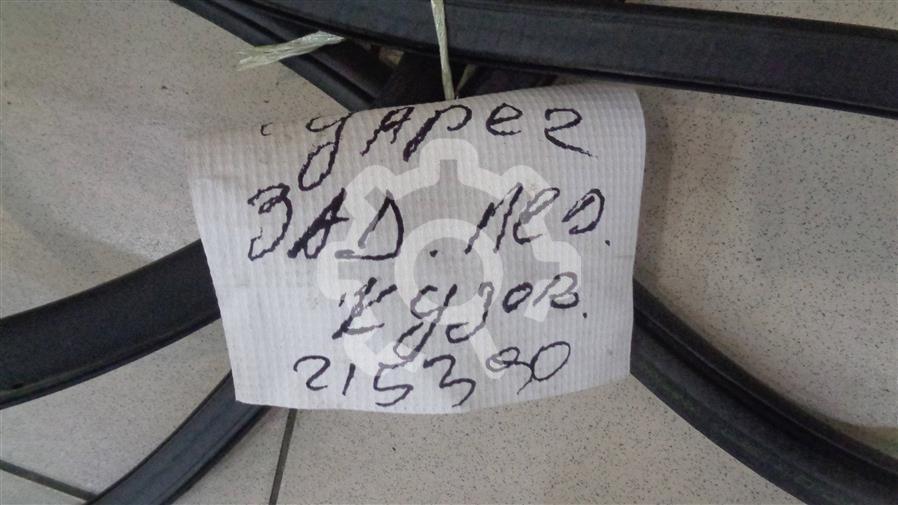 уАрег
ЗАД. лев.
кузов.
215390